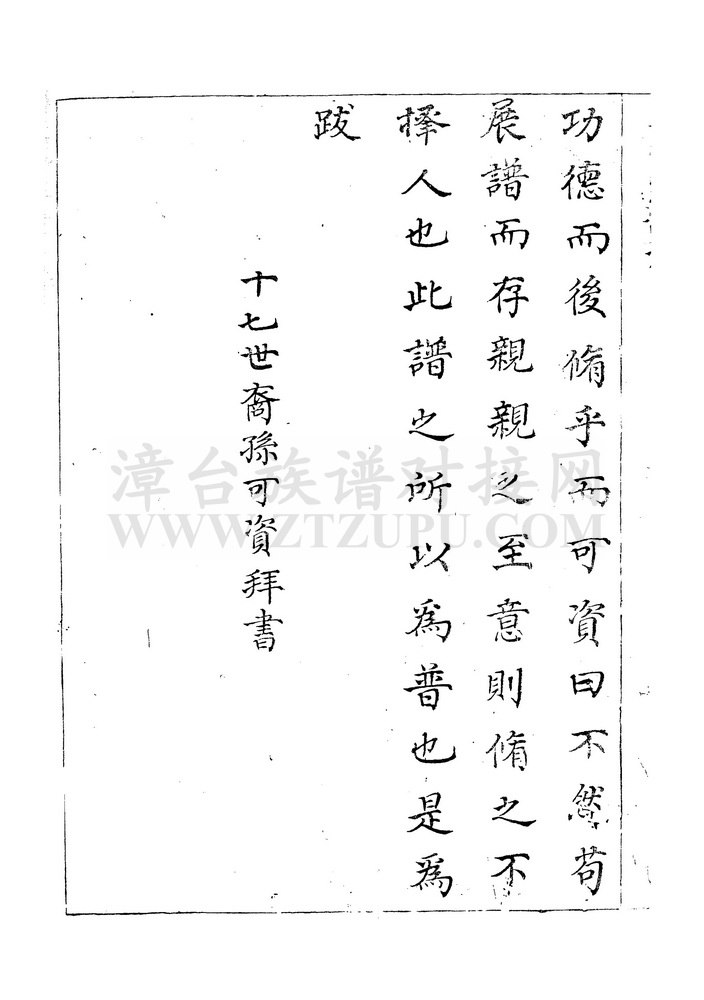 功德而後脩乎而可資曰不然苟
展譜而存親親之至意則脩之不
擇人也此譜之所以為普也是為
跋
十七世裔孫可資拜書
漳台族谱对接网
WWW.ZTZUPU.COM